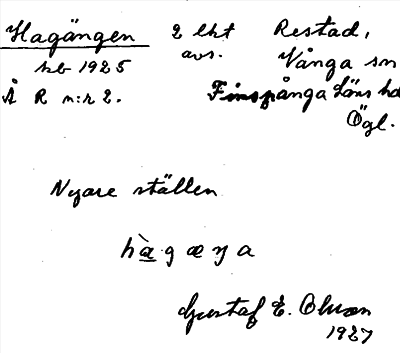 Hagängen 2 lht Restad,
avs. Vånga sn
hb 1925
Å R n:r 2. Finspånga Läns hd
Ögl.
Nyare ställen
hàgæŋa
Gustaf E. Olson
1927